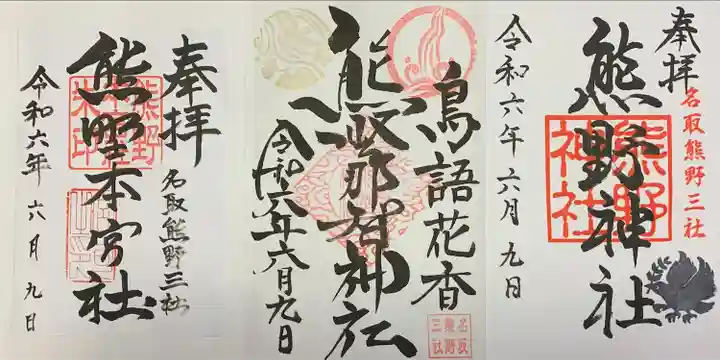 奉拝
名取熊野三社
熊野神社
熊野神社
令和六年六月九日
鳥語花香
熊野那智神社
令和六年六月九日
名取
熊野
三社
奉拝
名取熊野三社
熊野本宮社
令和六年六月九日